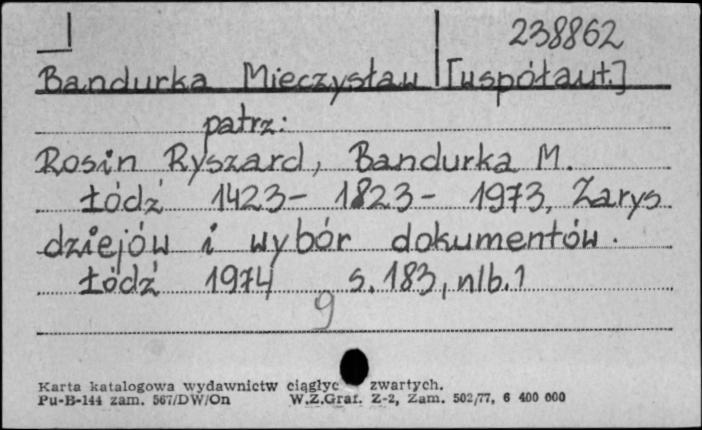 238862
Bandurka Mieczysław [współaut.]
patrz:
Rosin Ryszard, Bandurka M.
Łódź 1423- 1823- 1973, Zarys
dziejów i wybór dokumentów.
Łódź 1974 s. 183, nlb. 1
9
Karta katalogowa wydawnictw ciągłyc zwartych.
Pu-B-144 zam. 567/DW/On W.Z.Graf. Z-2, Zam. 502/77, 6 400 000